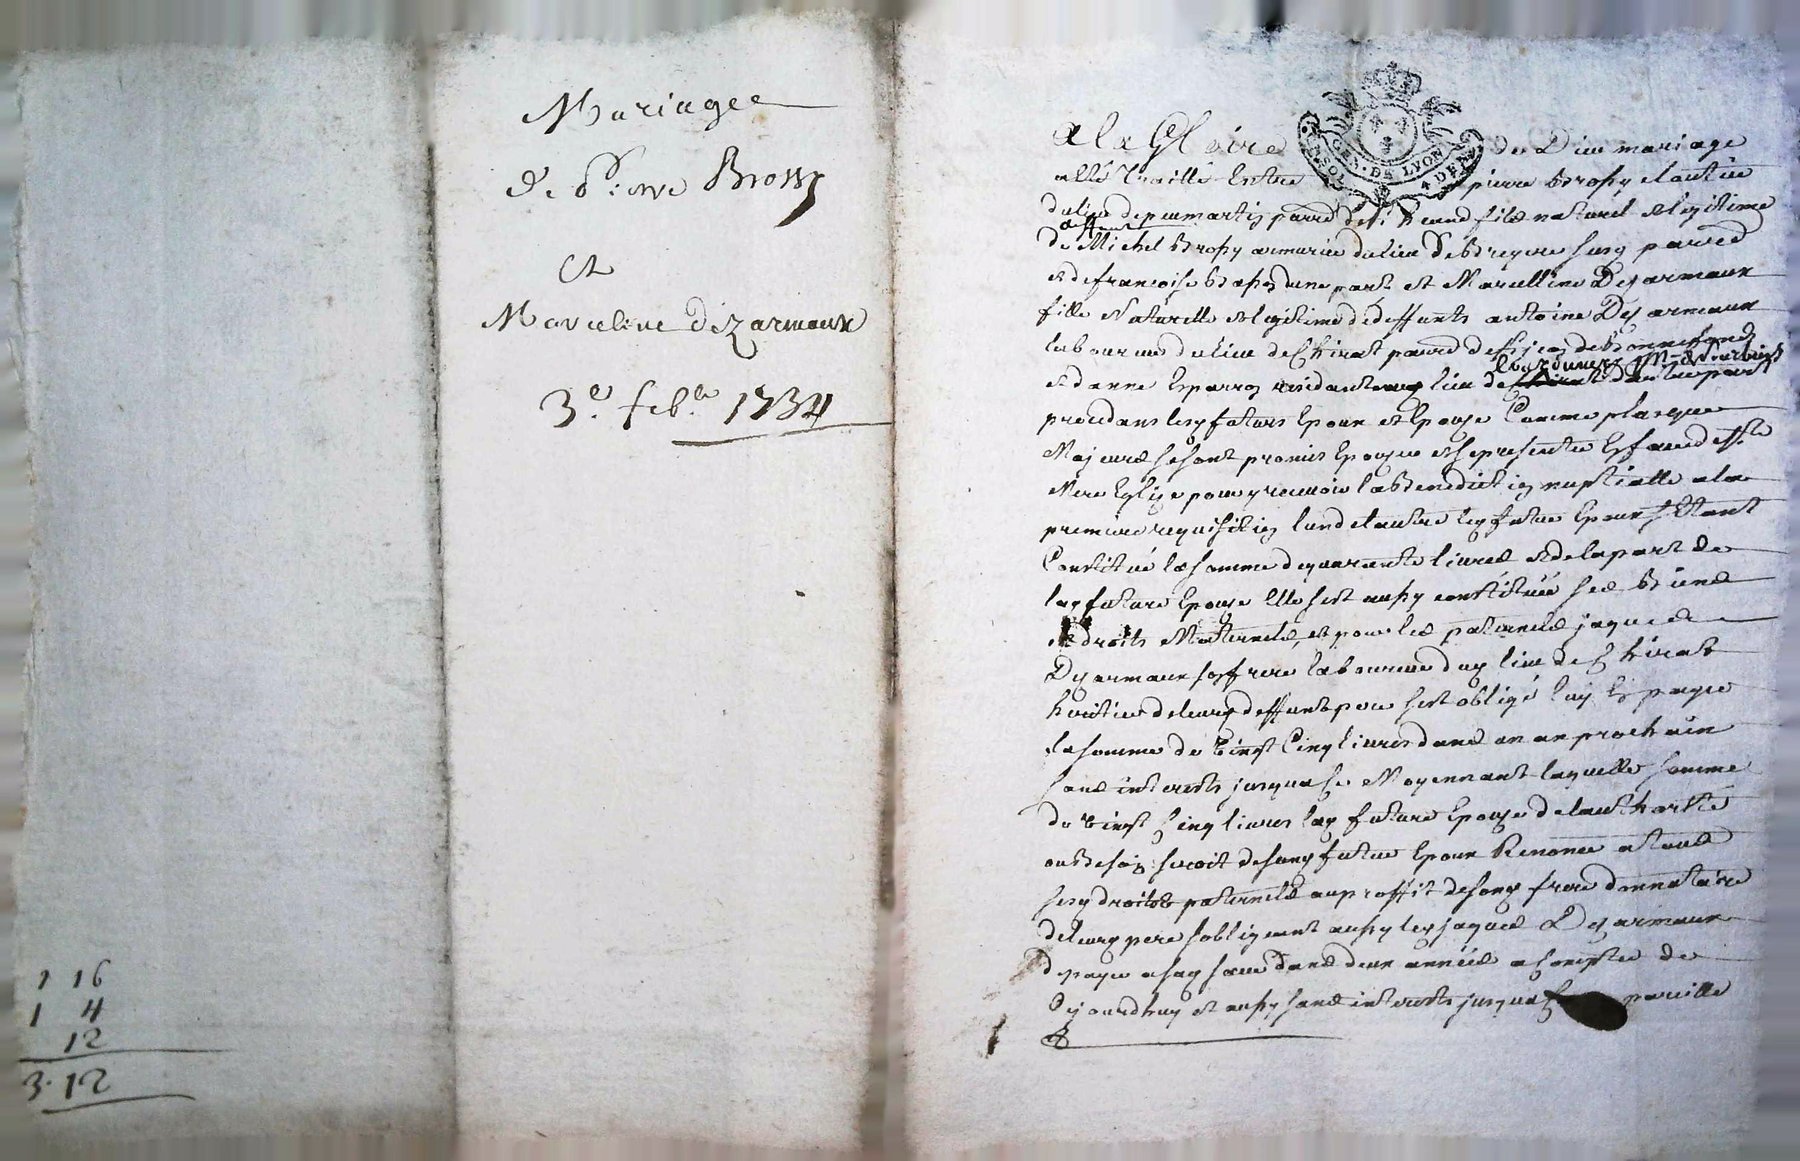 1 16
1 4
12
3. 12
Mariage
de pierre Brossy
Et
Marceline dezarmaux
3e. feb.r 1734
GEN. DE LYON
A La Gloire de Dieu mariage
a esté Traitté Entre pierre Brossy
du lieu de parre de fils naturel et legitime
deffunct
de Michel Brossy armurier du lieu de parre
et de francoise dune part et Marcelline Dezarmaux
fille Naturelle et legitime de deffunts antoine Dezarmaux
laboureur du lieu de Chirat parre de
et danne residante lieu de
procedans lesq futurs Epoux et Epouze Comme
Majeurs se sont promis Epouzer et se presenter En face de
Mere Eglize pour y recevoir la Benediction nuptialle a la
premiere requisition lun de lautre leq futur Epoux sestant
Constitué la somme de quarante livres et de la part de
laq future Epouze Elle sest aussy constituée ses Biens
et droits Maternels, et pour les paternels jaques
Dezarmaux son frere laboureur duq lieu de Chirat
heritier de leurq deffunt pere sest obligé luy En payer
la somme de vingt Cinq livres dans un an prochain
sans interests jusqua ce Moyennant laquelle somme
de vingt Cinq livres laq future Epouze de lauthorité
ou besoin seroit de sonq futur Epoux Renonce a tous
sesq droits paternels au proffit de sonq frere donnataire
de leurq pere sobligeant aussy leq jaques Dezarmaux
de payer a saq sœur dans deux années a Compter de
Ce jourdhuy et aussy sans interests jusqua pareille